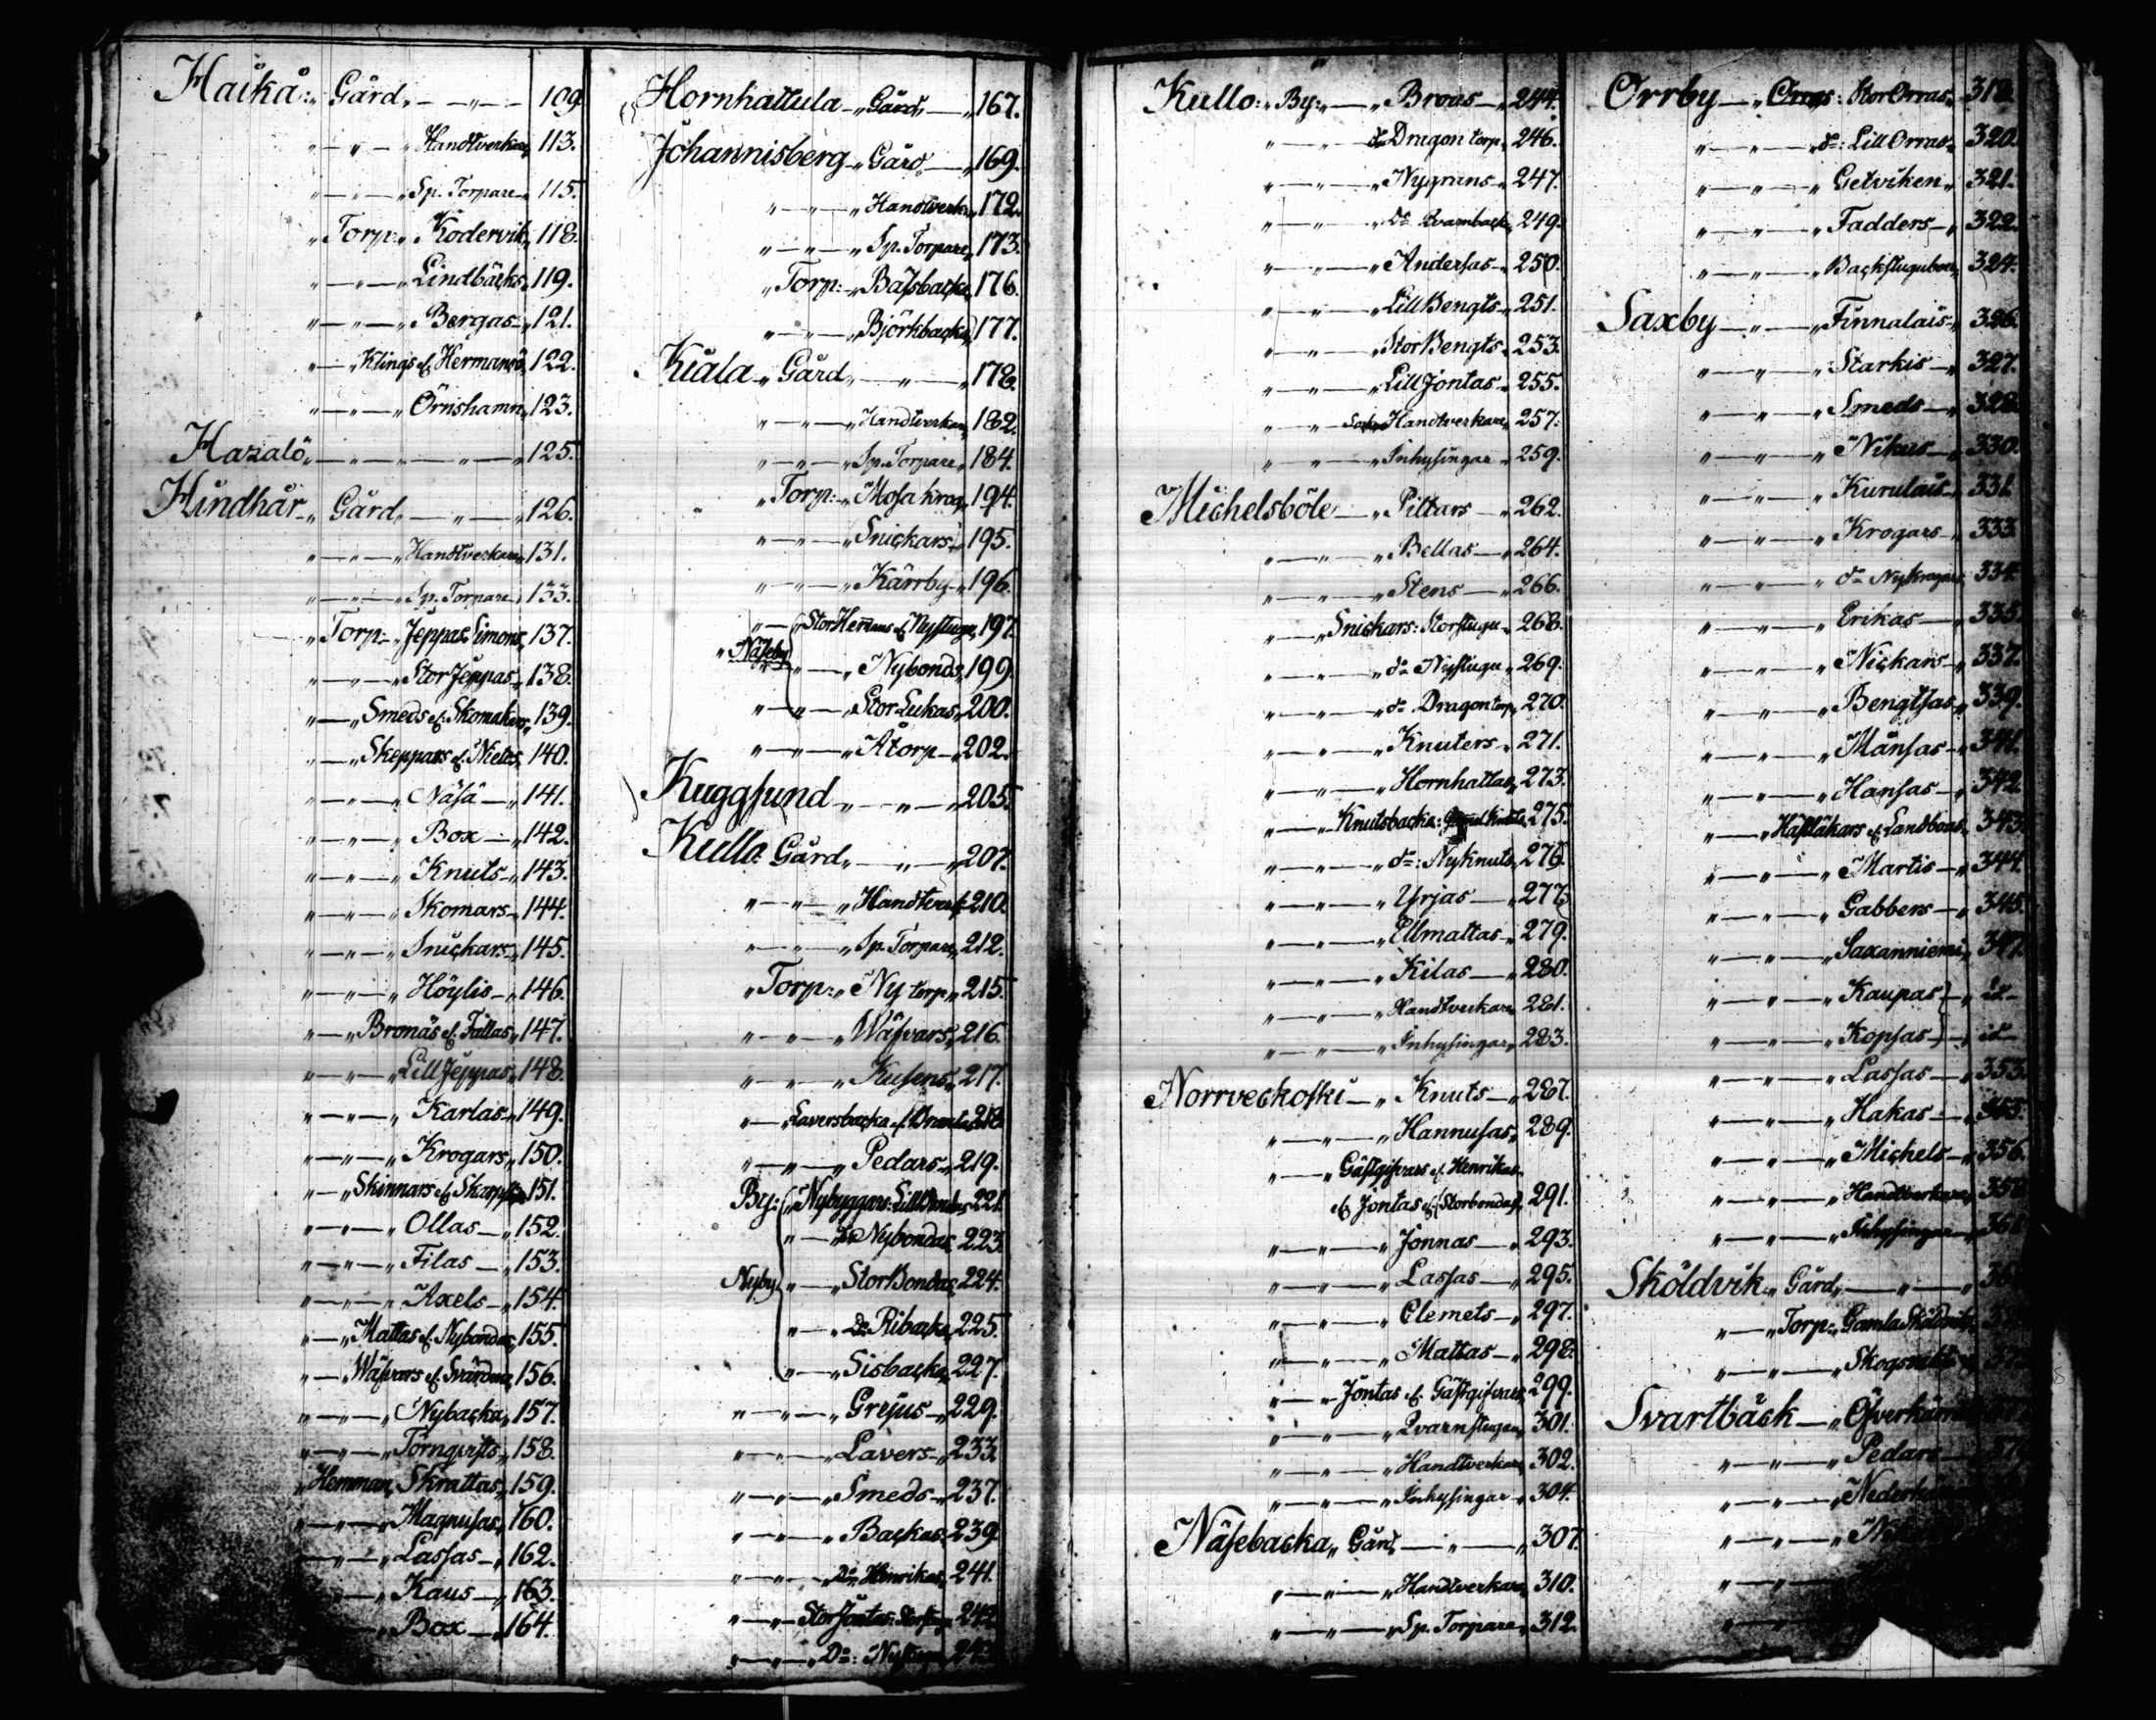 Haikå: „ Gård „ — „ — 109
„ — „ — „ Handtverkar „ 113.
„ — „ — „ Sp. Torpare „ 115.
„ Torp: „ Kodervik „ 118.
„ — „ — „ Lindbäcks „ 119.
„ — „ — „ Bergas — „ 121.
„ — „ Klings el. Hermans „ 122.
„ — „ — „ Örnshamn „ 123.
Hazalö „ — „ — „ — „ 125.
Hindhår „ Gård „ — „ — „ 126.
„ — „ — „ Handtverkare „ 131.
„ — „ — „ Sp. Torpare „ 133.
„ Torp: „ Jeppas Simons „ 137.
„ — „ — „ Stor Jeppas „ 138.
„ — „ Smeds el. Skomakers „ 139.
„ — „ Skeppars el. Nietes „ 140.
„ — „ — „ Näsä — „ 141.
„ — „ — „ Box — „ 142.
„ — „ — „ Knuts — „ 143.
„ — „ — „ Skomars „ 144.
„ — „ — „ Snickars „ 145.
„ — „ — „ Höylis — „ 146.
„ — „ Bronäs el. Fallas „ 147.
„ — „ — „ Lill Jeppas „ 148.
„ — „ — „ Karlas — „ 149.
„ — „ — „ Krogars „ 150.
„ — „ Skinnars el. 151.
„ — „ — „ Ollas — „ 152.
„ — „ — „ Filas — „ 153.
„ — „ — „ Axels — „ 154.
„ — „ Mattas el. Nybondas „ 155.
„ — „ Wäfvars el. Svärdens „ 156.
„ — „ — „ Nybacka „ 157.
„ — „ — „ Törnqvists „ 158.
„ Hemman „ Skrattas „ 159.
„ — „ — „ Magnusas „ 160.
„ — „ — „ Lassas — „ 162.
— „ Kaus — „ 163.
„ Box — „ 164.
Hornhattula „ Gård „ — „ 167.
Johannisberg „ Gård „ — „ 169.
„ — „ — „ Handtverk „ 172.
„ — „ — „ Sp. Torpare „ 173.
„ Torp: „ Bassbacka „ 176.
„ — „ — „ Björkbacka „ 177.
Kiala „ Gård „ — „ — „ 178.
„ — „ — „ Handtverkar „ 182.
„ — „ — „ Sp. Torpare „ 184.
„ Torp: „ Mosa krog „ 194.
„ — „ — „ Snickars „ 195.
„ — „ — „ Kärrby „ 196.
„ — „ Stor Hermans el. Nystugu „ 197.
„ Näseby „ — „ Nybonds „ 199.
„ — „ — „ Stor Lukas „ 200.
„ — „ — „ Åtorp — „ 202.
Kuggsund „ — „ — „ 205.
Kullo: Gård „ — „ — „ 207.
„ — „ — „ Handtverk „ 210.
„ — „ — „ Sp. Torpare „ 212.
„ Torp: „ Ny torp „ 215.
„ — „ — „ Wäfvars „ 216.
„ — „ — „ Kusens „ 217.
„ — „ Laversbacka el. 218.
„ — „ — „ Pedars „ 219.
By: „ Nybyggars: 221.
„ — „ Do Nybondas „ 223.
Nyby „ — „ Stor Bondas „ 224.
„ — „ Do Ribacka „ 225.
„ — „ Sisbacka „ 227.
„ — „ — „ Grejus „ 229.
„ — „ — „ Lavers „ 233.
„ — „ — „ Smeds „ 237.
„ — „ — „ Backas „ 239.
„ — „ — „ Do Henrikas „ 241.
„ — „ Stor Jontas: Storstugu
„ — „ — „ Do: Nystugu
Kullo: „ By: „ — „ Broas — „ 244.
„ — „ — do Dragon torp „ 246.
„ — „ — „ Nygrans „ 247.
„ — „ — „ Do Qvarnback „ 249.
„ — „ — „ Andersas „ 250.
„ — „ — „ Lill Bengts „ 251.
„ — „ — „ Stor Bengts „ 253.
„ — „ — „ Lill Jontas „ 255.
„ — „ — Handtverkare „ 257.
„ — „ — „ Inhysingar „ 259.
Michelsböle — „ Pittars — „ 262.
„ — „ — „ Bellas — „ 264.
„ — „ — „ Stens — „ 266.
„ — „ Snickars: Storstugu „ 268.
„ — „ — „ do Nystugu „ 269.
„ — „ — „ do Dragontorp „ 270.
„ — „ — „ Knuters „ 271.
„ — „ — „ Hornhattas „ 273.
„ — „ Knutsbacka: 275.
„ — „ — „ do: Nyknuts „ 276.
„ — „ — „ Yrjas — „ 277.
„ — „ — „ Ellmattas „ 279.
„ — „ — „ Kilas — „ 280.
„ — „ — „ Handtverkare „ 281.
„ — „ — „ Inhysingar „ 283.
Norrveckoski — „ Knuts — „ 287.
„ — „ — „ Hannusas „ 289.
„ — „ Gästgifvars el. Henrikas
el. Jontas el. Storbondas „ 291.
„ — „ — „ Jonnas — „ 293.
„ — „ — „ Lassas — „ 295.
„ — „ — „ Clemets — „ 297.
„ — „ — „ Mattas — „ 298.
„ — „ Jontas el. Gästgifvars „ 299.
„ — „ — „ Qvarnstugan „ 301.
„ — „ — „ Handtverkare „ 302.
„ — „ — „ Inhysingar „ 304.
Näsebacka „ Gård „ — „ — „ 307.
„ — „ — „ Handtverkare „ 310.
„ — „ — „ Sp. Torpare „ 312.
Orrby — „ Orras: Stor Orras „ 318.
„ — „ — „ do: Lill Orras „ 320.
„ — „ — „ Getviken „ 321.
„ — „ — „ Fadders — „ 322.
„ — „ — „ Backstugubor „ 324.
Saxby — „ — „ Finnalais „ 326.
„ — „ — „ Starkis — „ 327.
„ — „ — „ Smeds — „ 328.
„ — „ — „ Nikus — „ 330.
„ — „ — „ Kurulais „ 331.
„ — „ — „ Krogars „ 333.
„ — „ — „ do Nykrogars „ 334.
„ — „ — „ Erikas — „ 335.
„ — „ — „ Nickars „ 337.
„ — „ — „ Bengtsas „ 339.
„ — „ — „ Månsas — „ 341.
„ — „ — „ Hansas — „ 342.
„ — „ Hästläkars el. Landboas „ 343.
„ — „ — „ Martis — „ 344.
„ — „ — „ Gabbers — „ 345.
„ — „ — „ Saxanniemi „ 347.
„ — „ — „ Kaupas „ id —
„ — „ — „ Kopsas „ id —
„ — „ — „ Lassas — „ 353.
„ — „ — „ Hakas — „ 355.
„ — „ — „ Michels — „ 356.
„ — „ — „ Handtverkare „ 358.
„ — „ — „ Inhysingar — 361.
Sköldvik „ Gård „ — „ — „
„ — „ Torp: „ Gamla Sköldvik
„ — „ — „
Svartbäck — „
„ — „ — „ Pedars
„ — „ — „
„ — „ — „
„ — „ —
„ — „